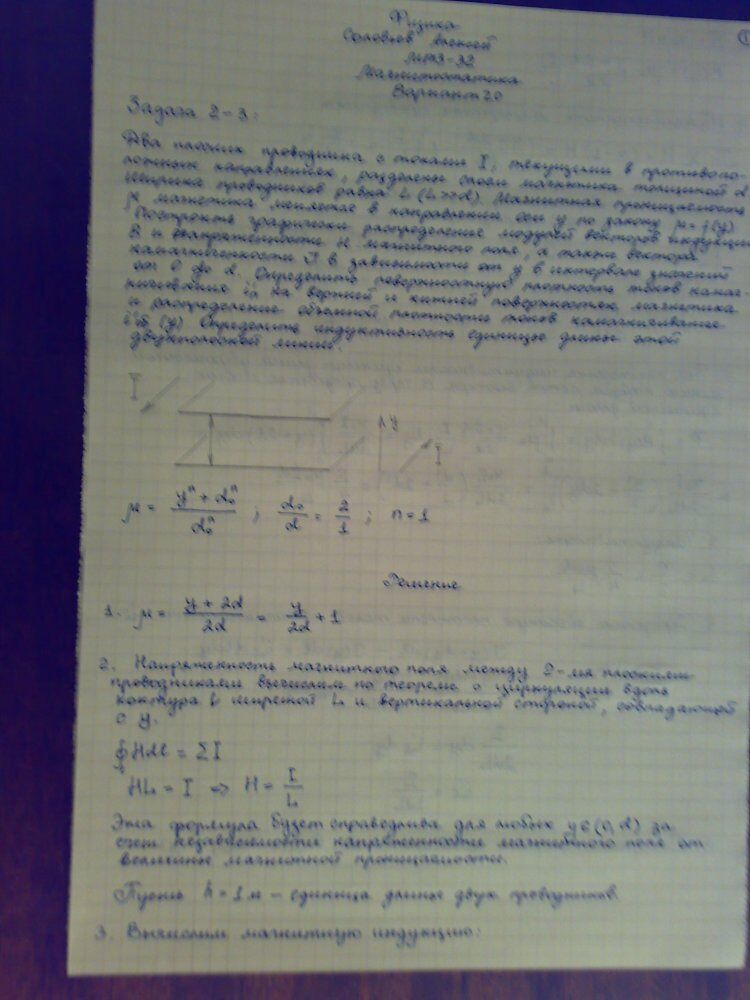 Физика
Соловьев
МТ3-32
Магнитостатика
Вариант 20
Задача 2-3:
Два плоских проводника с токами I, текущими в противопо-
ложных направлениях, разделены слоем магнетика толщиной d.
Ширина проводников равна L (L>>d). Магнитная проницаемость
μ магнетика меняется в направлении оси y по закону μ = f(y).
Построить графически распределение модулей векторов индукции
B и напряженности H магнитного поля, а также вектора
намагниченности J в зависимости от y в интервале значений
от 0 до d. Определить поверхностную плотность токов намаг-
ничивания i'п на верхней и нижней поверхностях магнетика
и распределение объемной плотности токов намагничивания
i'об (y). Определить индуктивность единицы длины этой
двухполосной линии.
I
y
I
μ = (yⁿ + d₀ⁿ)/d₀ⁿ ; d₀/d = 2/1 ; n = 1
Решение
1. μ = (y + 2d)/2d = y/2d + 1
2. Напряженность магнитного поля между 2-мя плоскими
проводниками вычислим по теореме о циркуляции вдоль
контура L шириной L и вертикальной стороной, совпадающей
с y.
∮Hdl = ΣI
HL = I => H = I/L
Эта формула будет справедлива для любых y∈(0, d) за
счет независимости напряженности магнитного поля от
величины магнитной проницаемости.
Пусть h = 1м – единица длины двух проводников.
3. Вычислим магнитную индукцию: